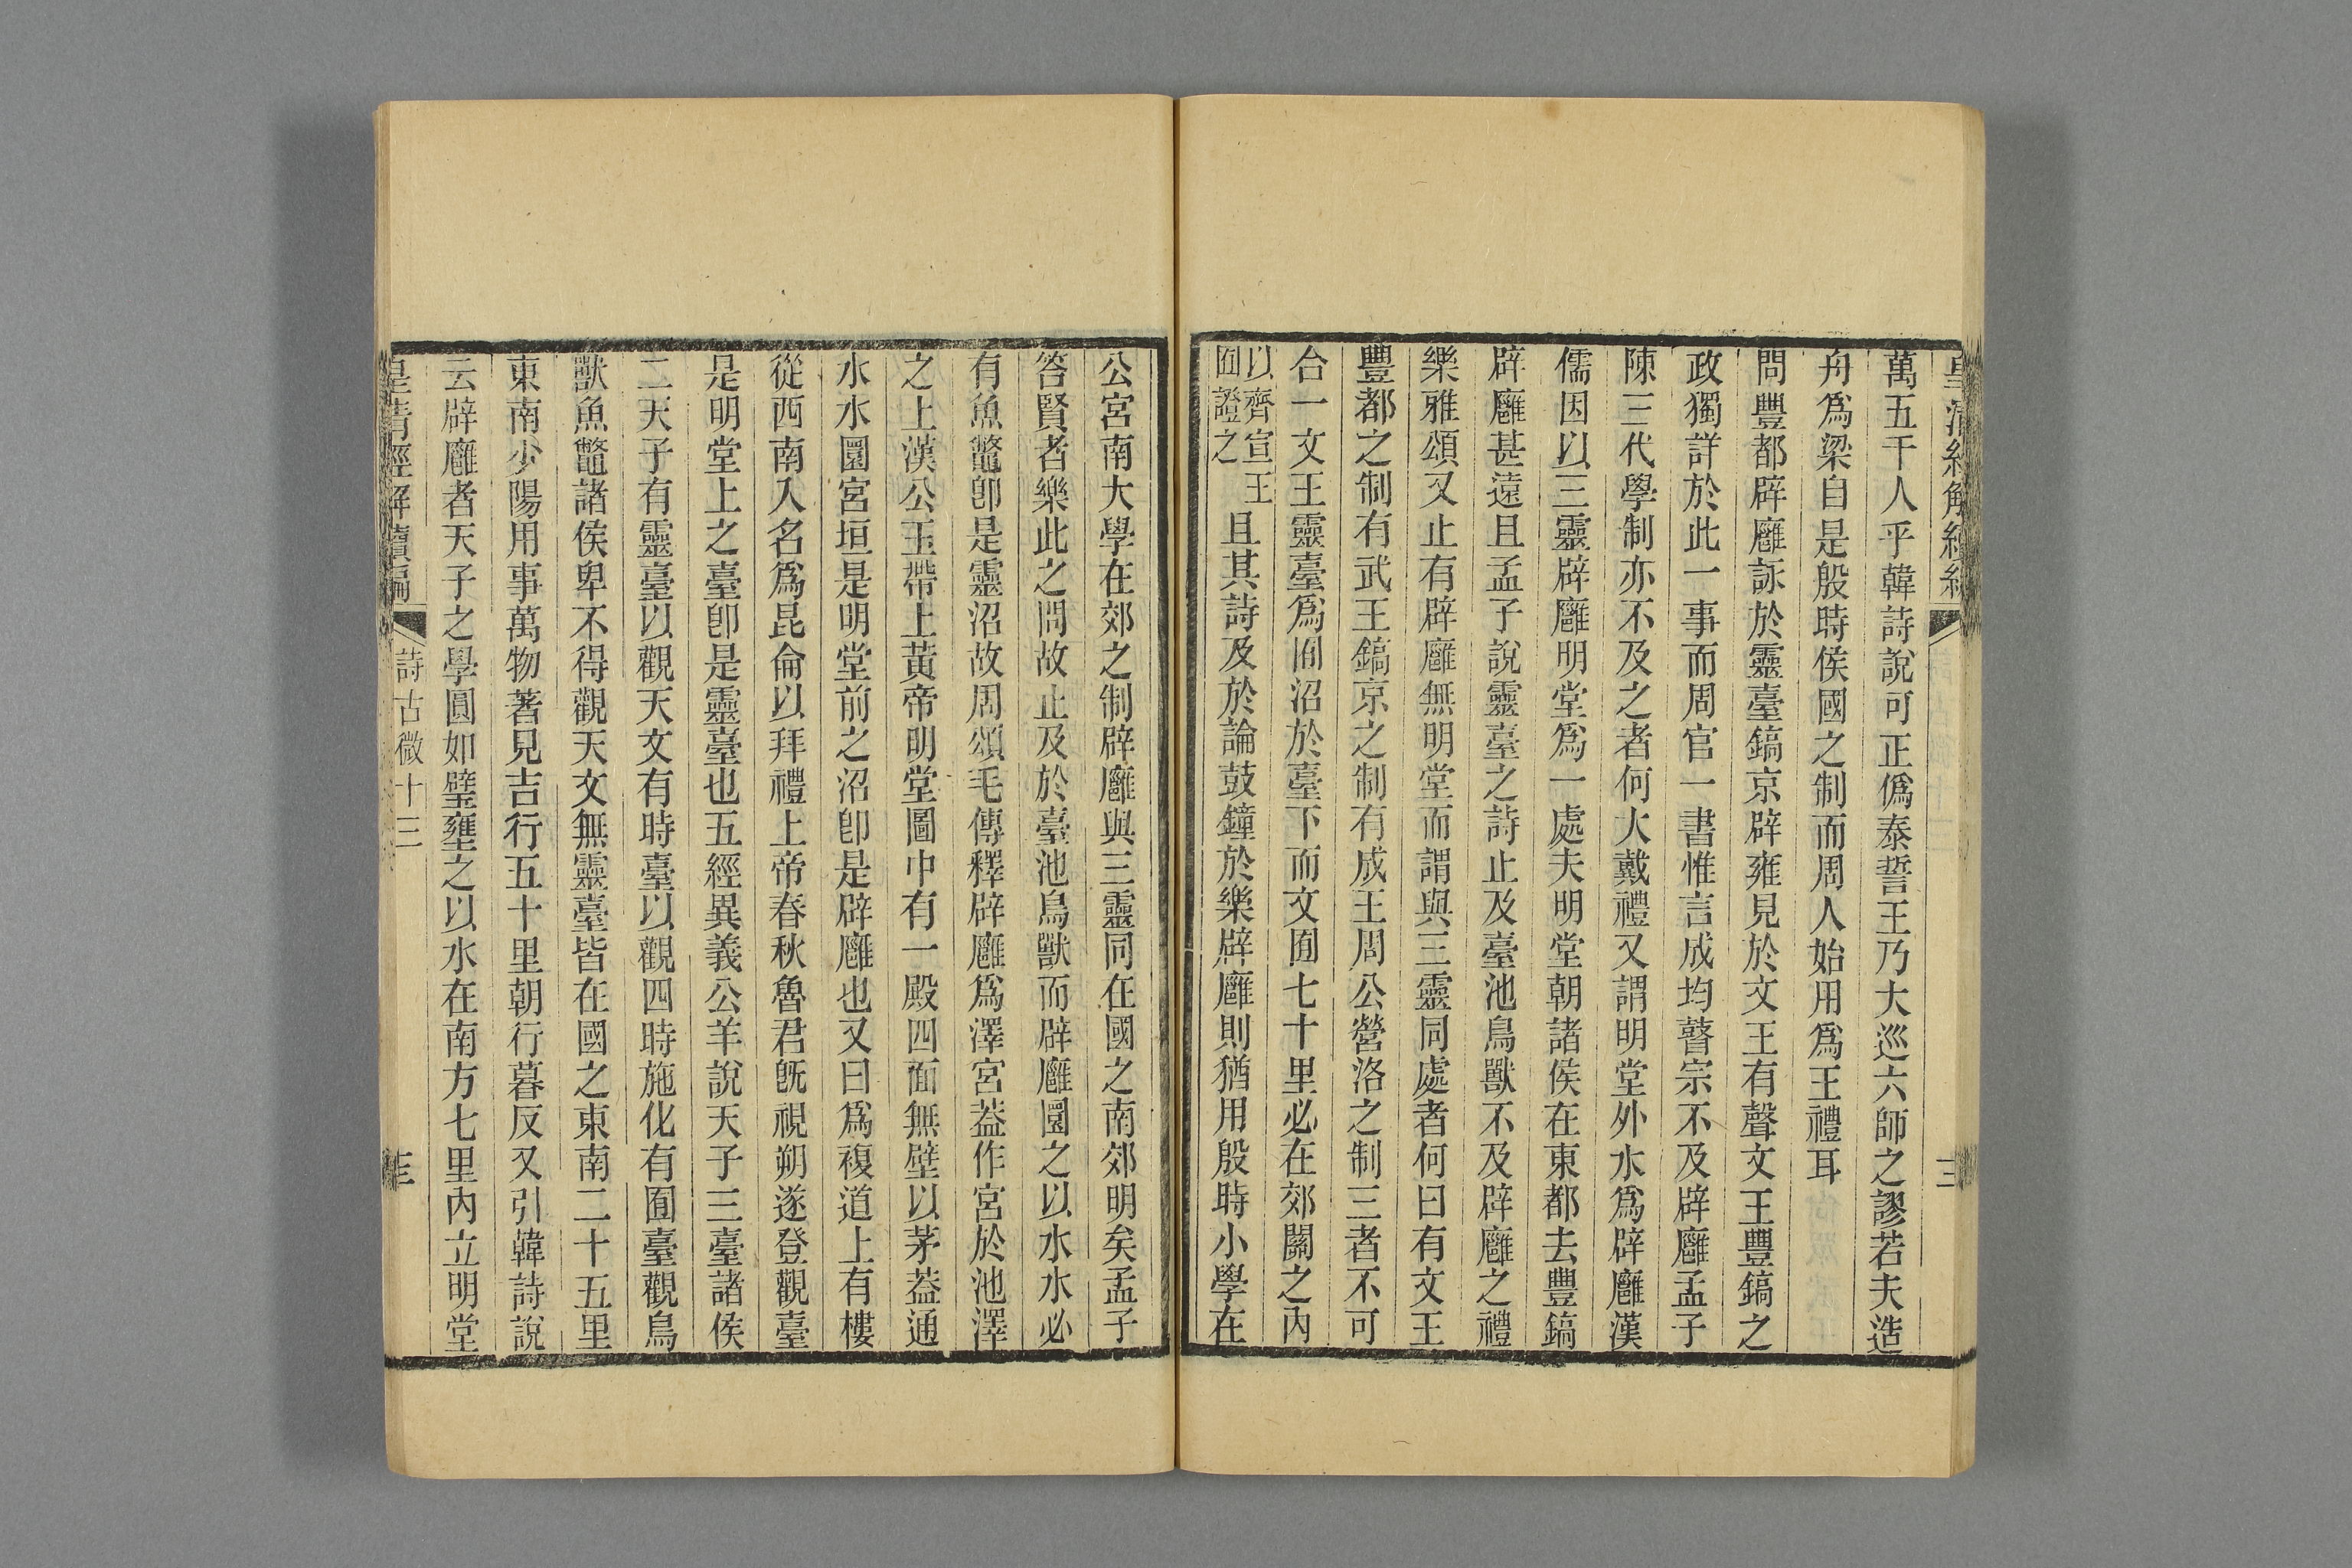 萬五千人乎韓詩說可正僞泰誓王乃大巡六師之謬若夫造
舟爲梁自是殷時侯國之制而周人始用爲王禮耳
問豐都辟廱詠於靈臺鎬京辟雍見於文王有聲文王豐鎬之
政獨詳於此一事而周官一書惟言成均瞽宗不及辟廱孟子
陳三代學制亦不及之者何大戴禮又謂明堂外水爲辟廱漢
儒因以三靈辟廱明堂爲一處夫明堂朝諸侯在東都去豐鎬
辟廱甚遠且孟子說靈臺之詩止及臺池鳥獸不及辟廱之禮
樂雅頌又止有辟廱無明堂而謂與三靈同處者何曰有文王
豐都之制有武王鎬京之制有成王周公營洛之制三者不可
合一文王靈臺爲囿沼於臺下而文囿七十里必在郊關之內
以齊宣王
囿證之
且其詩及於論鼓鐘於樂辟廱則猶用殷時小學在
公宮南大學在郊之制辟廱與三靈同在國之南郊明矣孟子
答賢者樂此之問故止及於臺池鳥獸而辟廱圜之以水水必
有魚鼈卽是靈沼故周頌毛傳釋辟廱爲澤宮葢作宮於池澤
之上漢公玉帶上黃帝明堂圖中有一殿四面無壁以茅葢通
水水圜宮垣是明堂前之沼卽是辟廱也又曰爲複道上有樓
從西南入名爲昆侖以拜禮上帝春秋魯君旣視朔遂登觀臺
是明堂上之臺卽是靈臺也五經異義公羊說天子三臺諸侯
二天子有靈臺以觀天文有時臺以觀四時施化有囿臺觀鳥
獸魚鼈諸侯卑不得觀天文無靈臺皆在國之東南二十五里
東南少陽用事萬物著見吉行五十里朝行暮反又引韓詩說
云辟廱者天子之學圓如璧壅之以水在南方七里內立明堂
皇清經解續編
詩古微十三